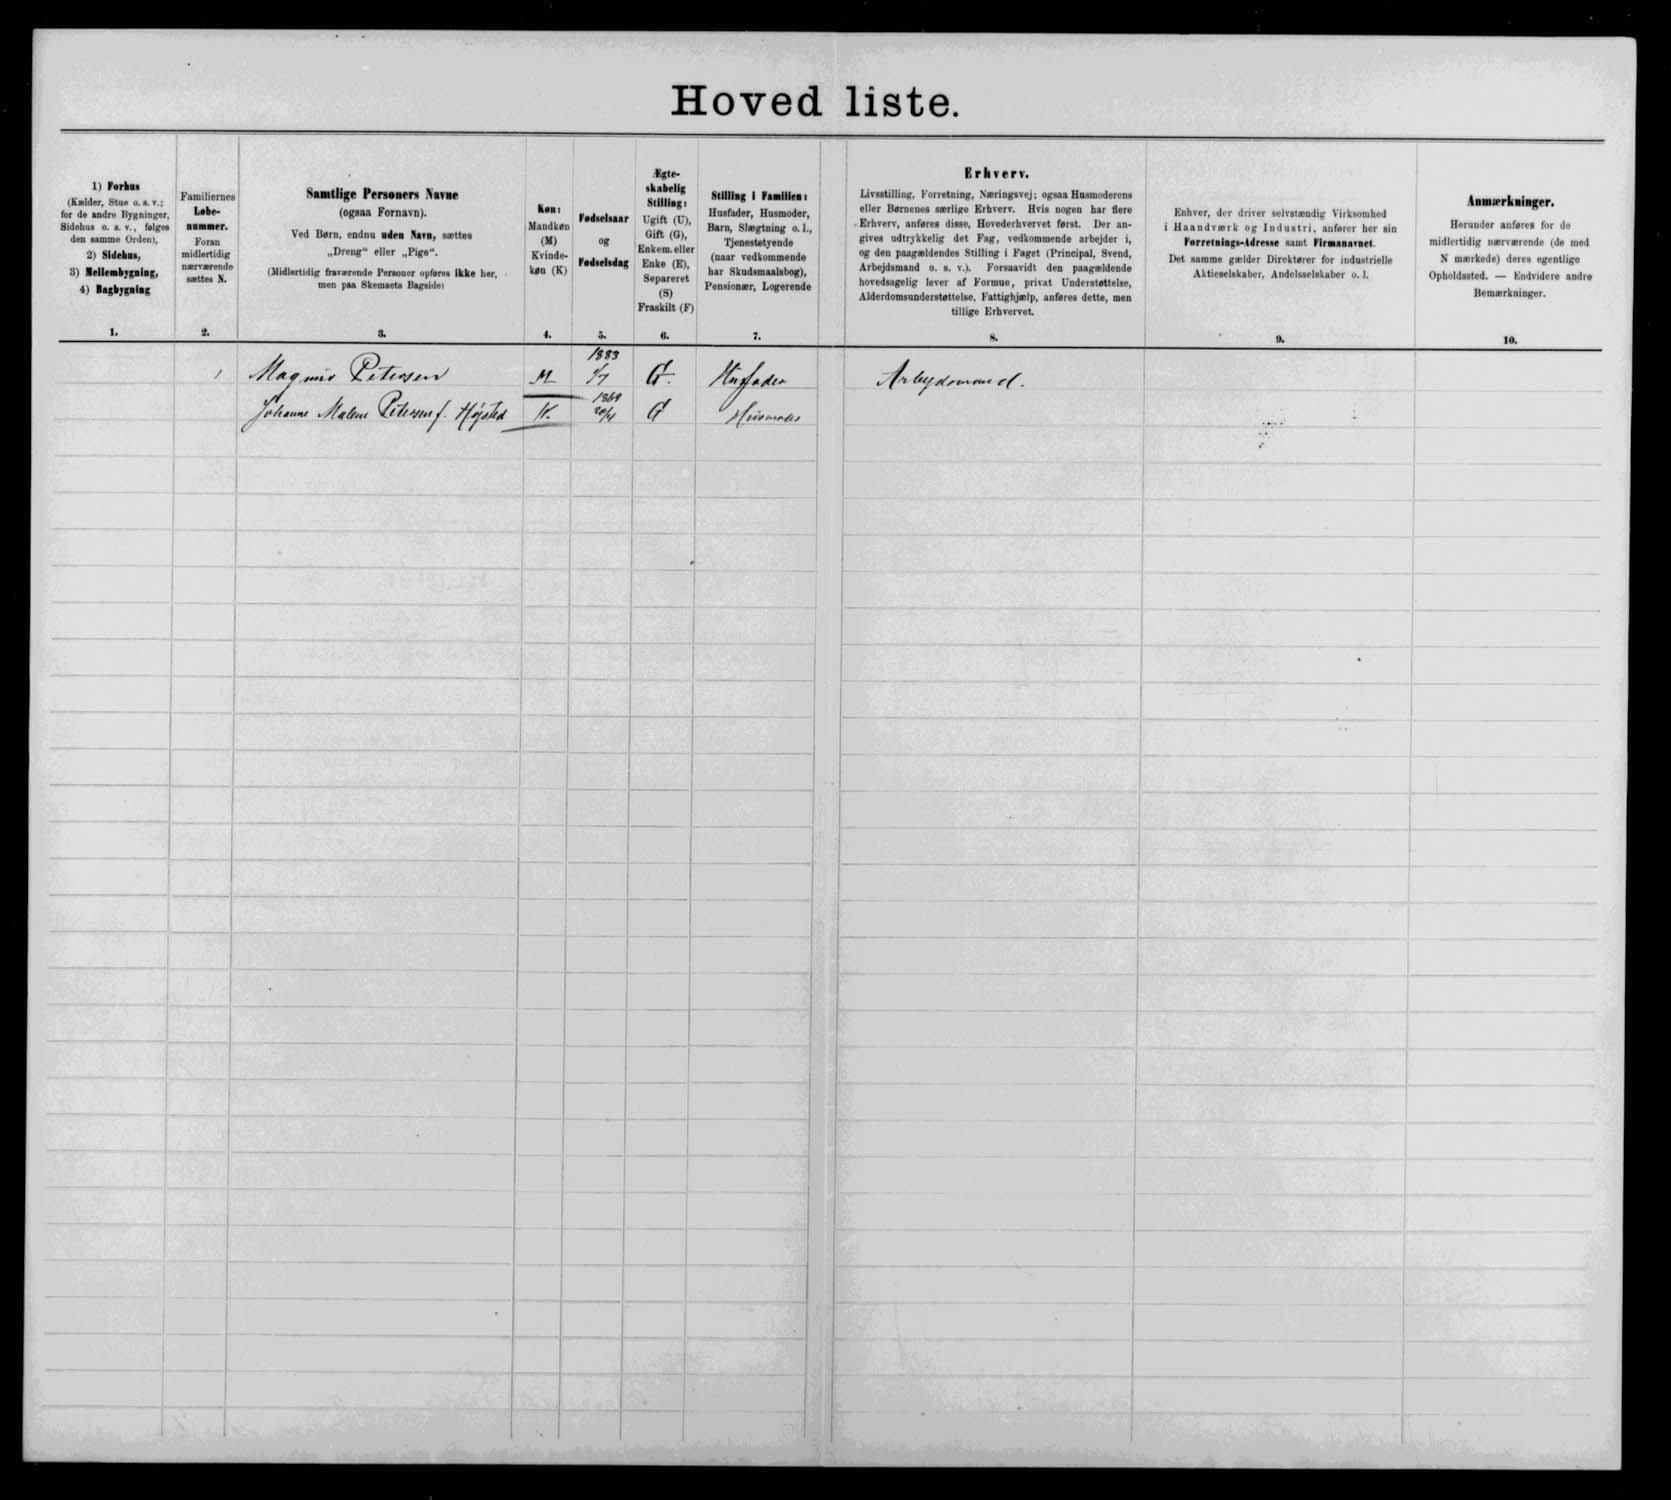 Hoved liste.
1) Forhus
(Kælder, Stue o. s. v.;
for de andre Bygninger,
Sidehus o. s. v., følges
den samme Orden),
2) Sidehus,
3) Mellembygning,
4) Bagbygning
1.
Familiernes
Løbe-
nummer.
Foran
midlertidig
nærværende
sættes N.
2.
Samtlige Personers Navne
(ogsaa Fornavn).
Ved Børn, endnu uden Navn, sættes
„Dreng“ eller „Pige“.
(Midlertidig fraværende Personer opføres ikke her,
men paa Skemaets Bagside)
3.
Køn:
Mandkøn
(M)
Kvinde-
køn (K)
4.
Fødselsaar
og
Fødselsdag
5.
Ægte-
skabelig
Stilling:
Ugift (U),
Gift (G),
Enkem. eller
Enke (E),
Separeret
(S)
Fraskilt (F)
6.
Stilling i Familien:
Husfader, Husmoder,
Barn, Slægtning o. l.,
Tjenestetyende
(naar vedkommende
har Skudsmaalsbog),
Pensionær, Logerende
7.
Erhverv.
Livsstilling, Forretning, Næringsvej; ogsaa Husmoderens
eller Børnenes særlige Erhverv. Hvis nogen har flere
Erhverv, anføres disse, Hovederhvervet først. Der an-
gives udtrykkelig det Fag, vedkommende arbejder i,
og den paagældendes Stilling i Faget (Principal, Svend,
Arbejdsmand o. s. v.). Forsaavidt den paagældende
hovedsagelig lever af Formue, privat Understøttelse,
Alderdomsunderstøttelse, Fattighjælp, anføres dette, men
tillige Erhvervet.
8.
Enhver, der driver selvstændig Virksomhed
i Haandværk og Industri, anfører her sin
Forretnings-Adresse samt Firmanavnet.
Det samme gælder Direktører for industrielle
Aktieselskaber, Andelsselskaber o. l.
9.
Anmærkninger.
Herunder anføres for de
midlertidig nærværende (de med
N mærkede) deres egentlige
Opholdssted. — Endvidere andre
Bemærkninger.
10.
1 Magnus Petersen M 1883 1/7 G. Husfader Arbejdsmand.
Johanne Malene Petersen f. Højsted K. 1869 20/4 G Husmoder